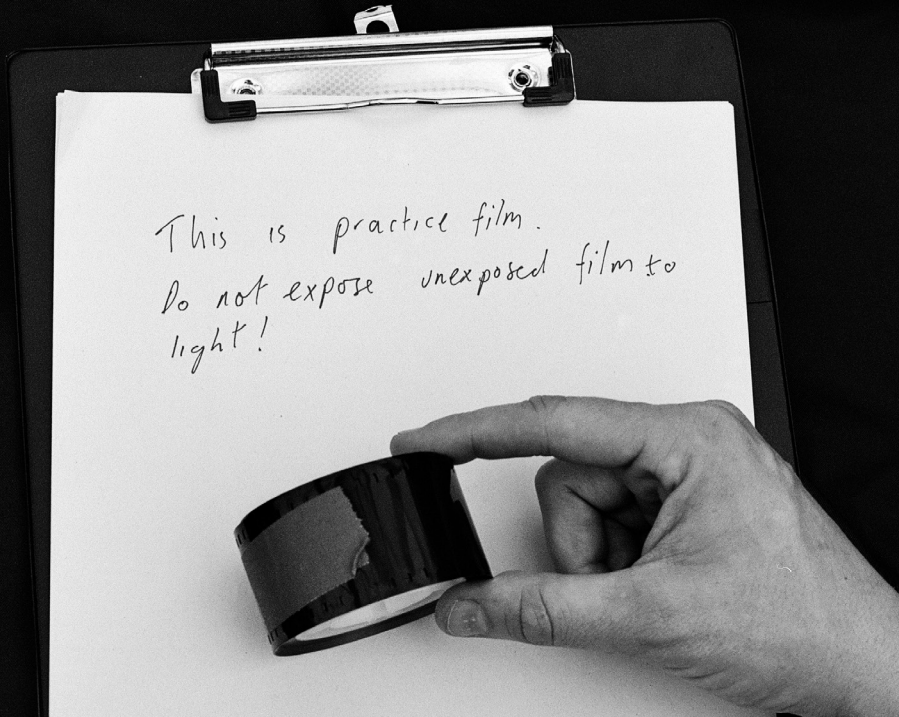 This is practice film.
Do not expose unexposed film to
light!